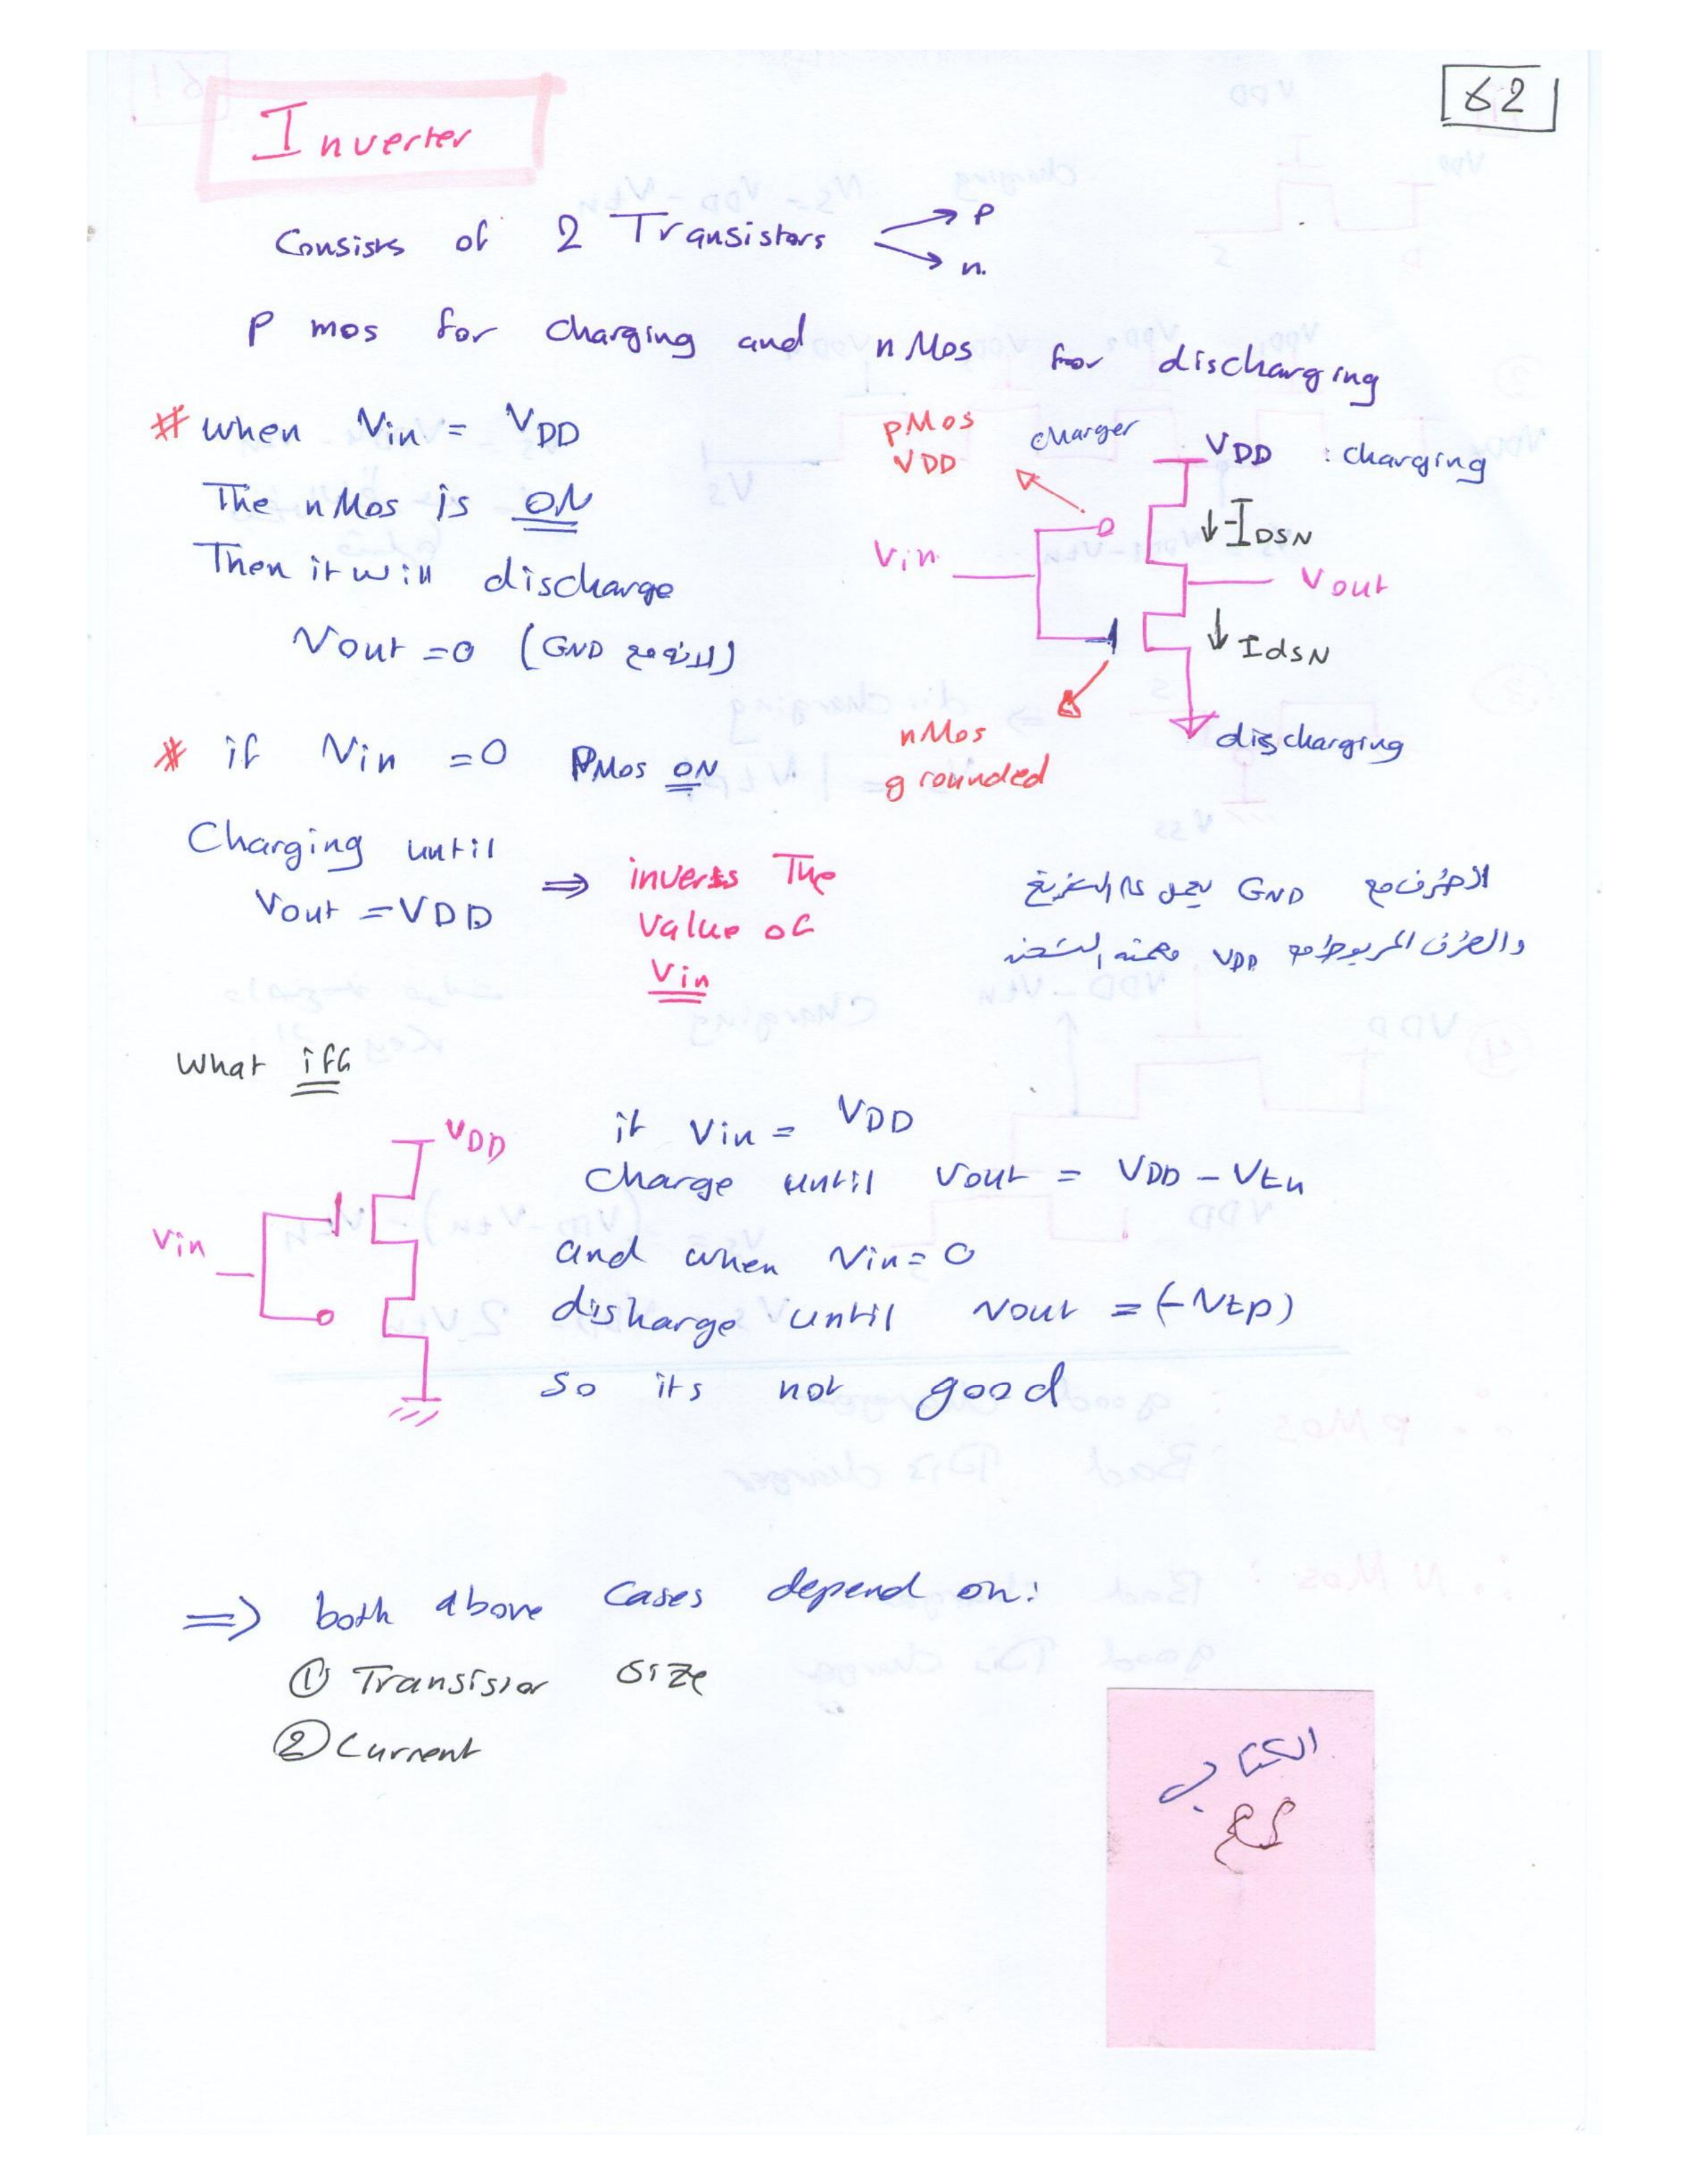 62
Inverter
Consists of 2 Transistors
P
n.
P mos for charging and nMos for discharging
# when Vin = VDD
The nMos is ON
Then it will discharge
Vout = 0 (GND لانه مع)
pMos
VDD
charger
VDD : charging
↓ -IDSN
Vin
Vout
↓ IdSN
nMos
grounded
discharging
* if Vin = 0 PMos ON
Charging until
Vout = VDD
⇒ inverts The
Value of
Vin
مع GND يعمل على التفريغ
والطرف المربوط مع VDD مهمته الشحن
What iff
VDD
Vin
if Vin = VDD
Charge until Vout = VDD - Vtn
and when Vin = 0
disharge until Vout = (-Vtp)
So its not good
=> both above Cases depend on:
① Transistor Size
② Current
الكتاب